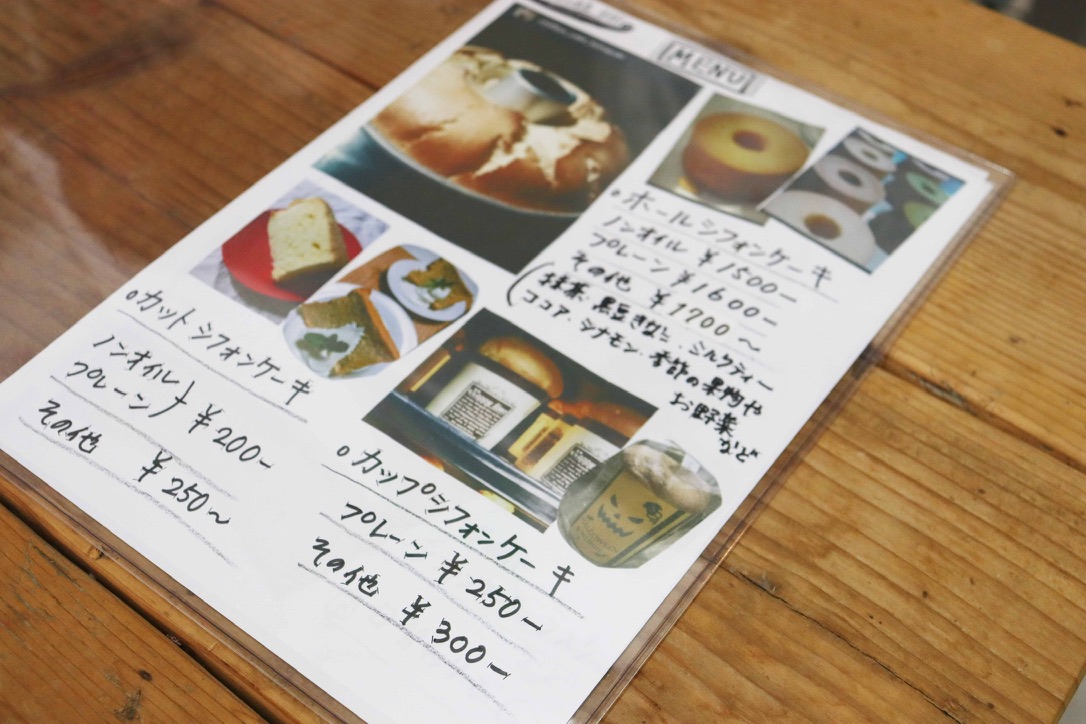 MENU
ホールシフォンケーキ
ノンオイル ¥1500-
プレーン ¥1600-
その他 ¥1700～
(抹茶・黒豆きなこ・ミルクティー
ココア・シナモン・季節の果物や
お野菜
など
カットシフォンケーキ
ノンオイル
プレーン ¥200-
その他 ¥250～
カップシフォンケーキ
プレーン ¥250-
その他 ¥300-